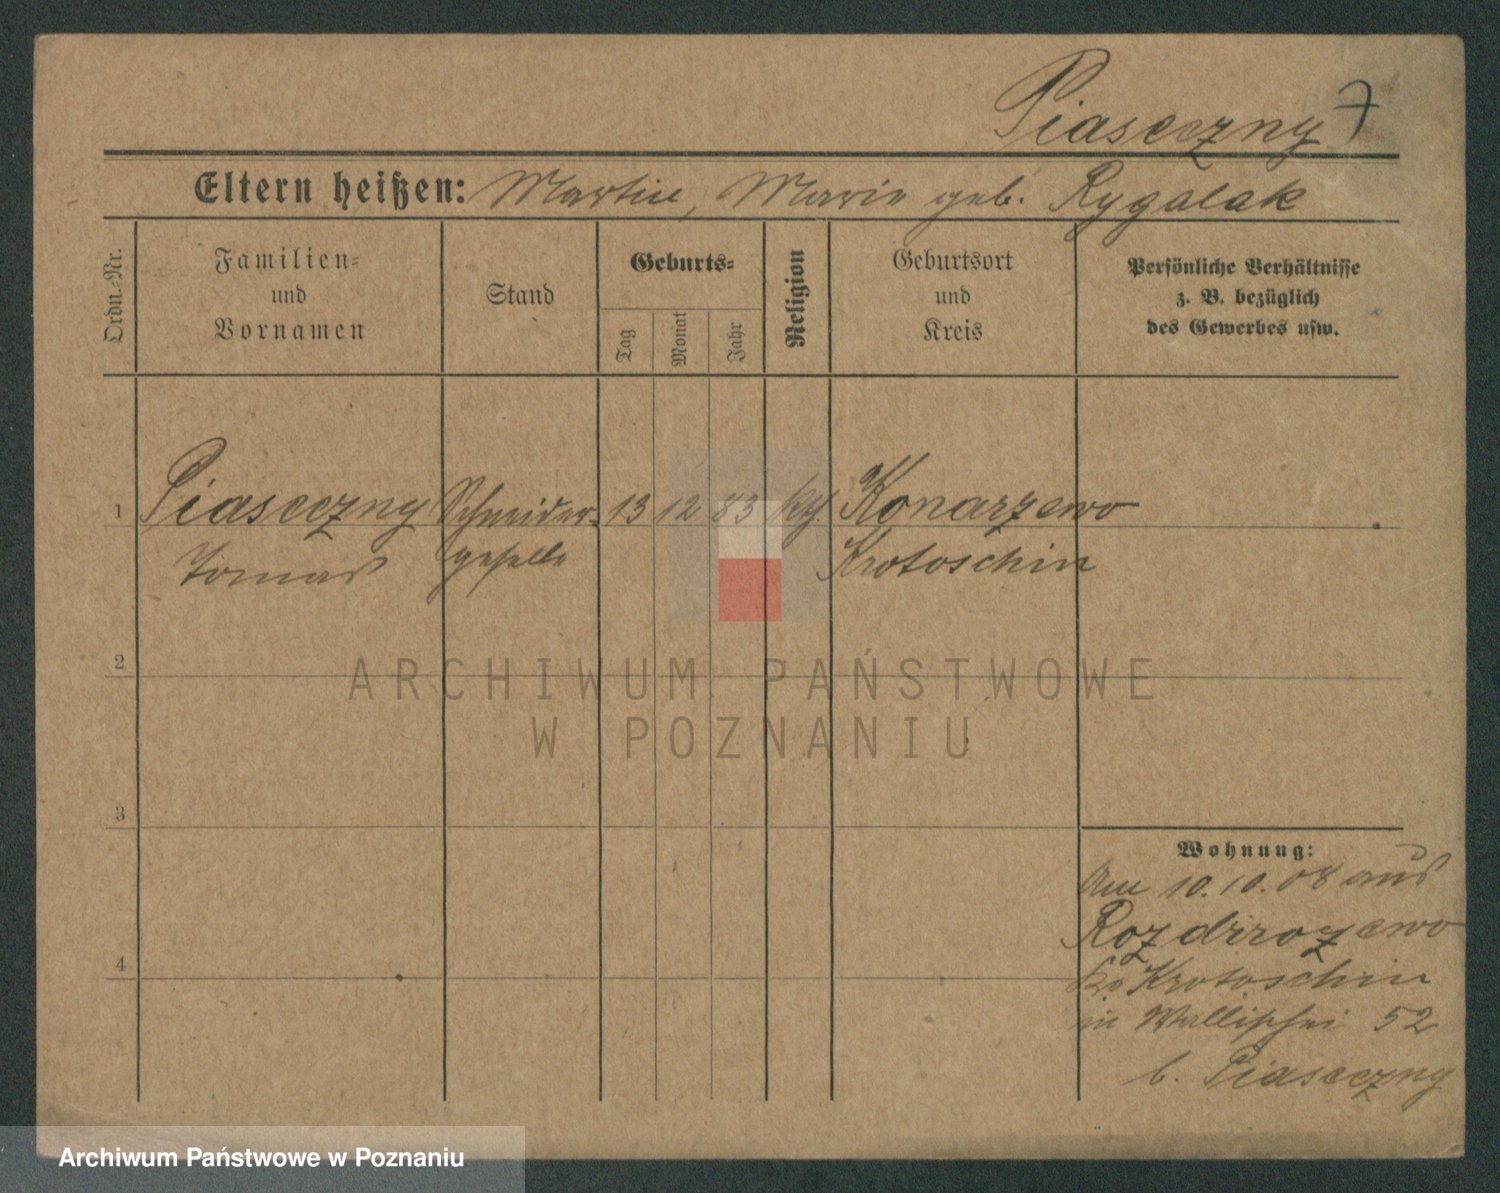 Piaseczny 7
Eltern heißen: Martin, Marie geb. Rygalak
Ordn.-Nr.
Familien-
und
Vornamen
Stand
Geburts-
Tag
Monat
Jahr
Religion
Geburtsort
und
Kreis
Persönliche Verhältnisse
z. B. bezüglich
des Gewerbes usw.
1 Piaseczny Schneider- 13 12 83 kth. Konarzewo
Tomas geselle Krotoschin
2
ARCHIWUM PAŃSTWOWE
W POZNANIU
3
Wohnung:
Am 10.10.08 aus
Rozdrrozewo
Kr. Krotoschin
in Wallischei 52
b. Piaseczny
4
Archiwum Państwowe w Poznaniu